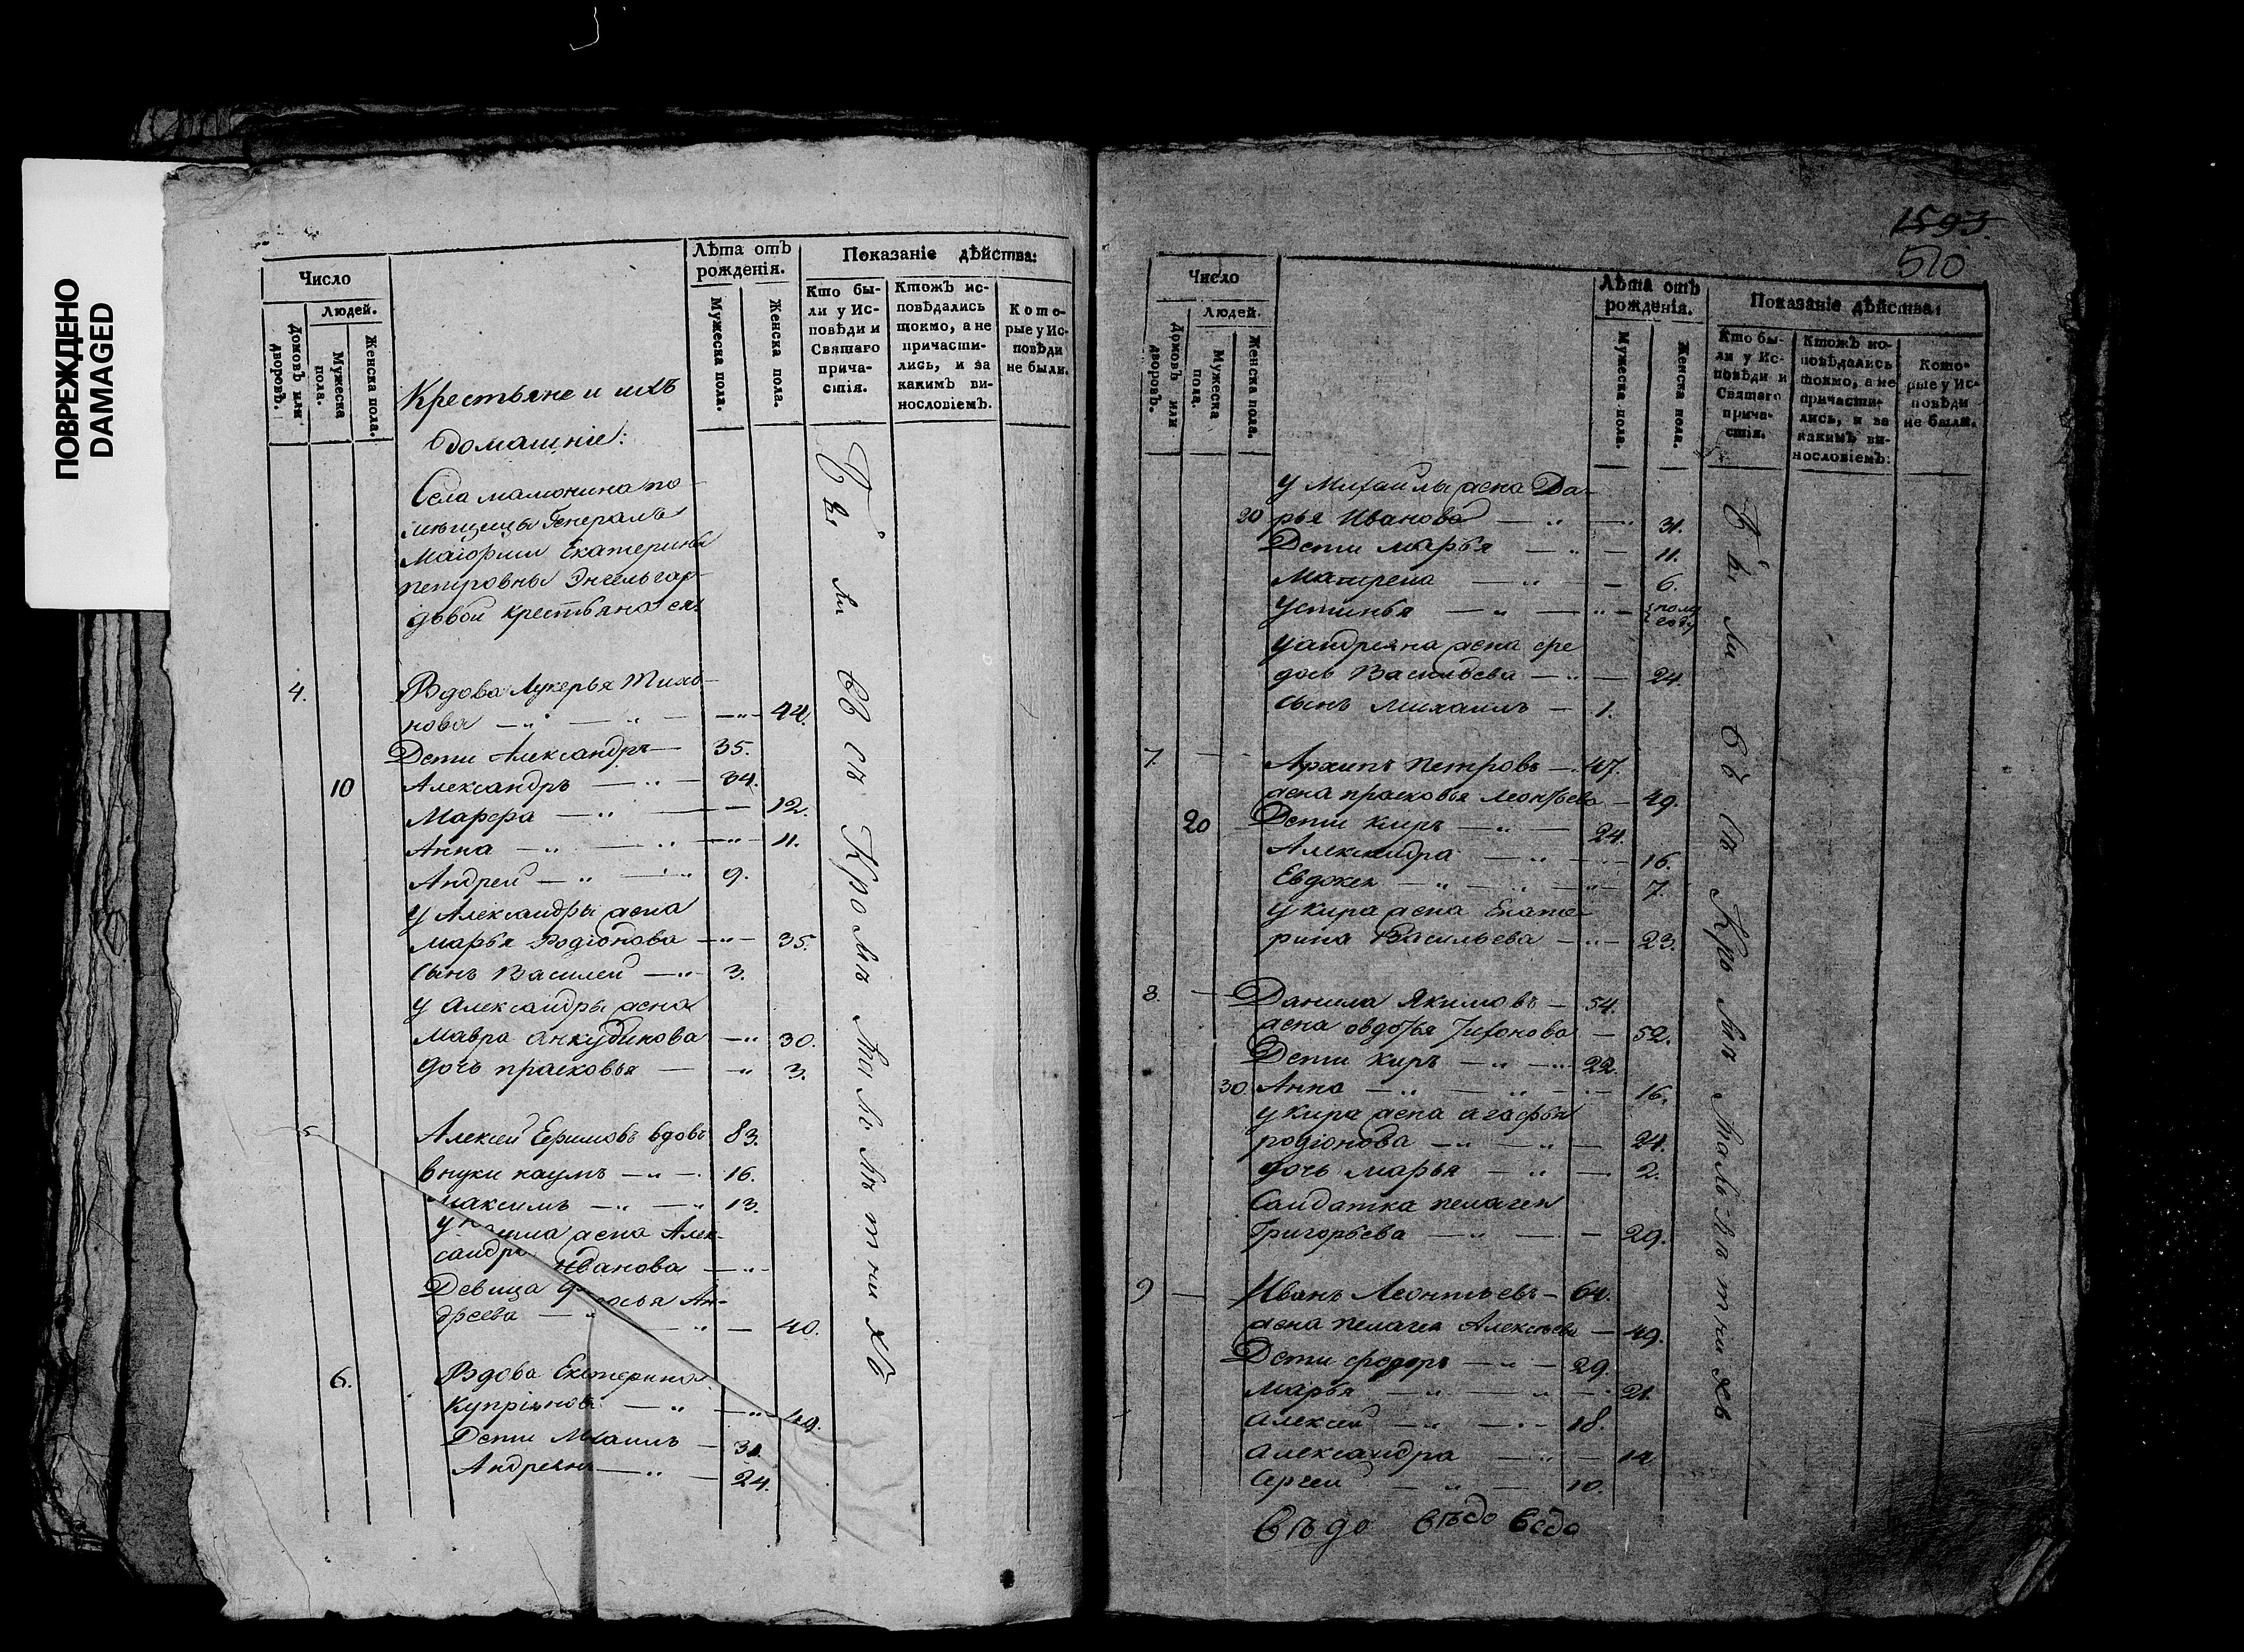 ПОВРЕЖДЕНО
DAMAGED
Число
Людей.
Домовъ или дворовъ.
Мужеска пола.
Женска пола.
Лѣта отъ рожденія.
Мужеска пола.
Женска пола.
Показаніе дѣйства:
Кто были у Исповѣди и Святаго причастія.
Ктожъ исповѣдались токмо, а не причастились, и за какимъ винословіемъ.
Которые у Исповѣди не были.
Крестьяне и ихъ
домашніе:
Села мамонина по-
мѣщицы Генералъ
Маіорши Екатерины
петровны Энгельгар-
довой крестьяна ея:
4. Вдова Лукерья Тихо-
нова 44.
Дети Александръ 35.
10 Александръ 34.
Марфа 12.
Анна 11.
Андрей 9.
у Александры жена
марья Родіонова 35.
сынъ Василей 3.
у Александры жена
мавра анкудинова 30.
дочь прасковья 3.
5 Алексей Ефимовъ вдовъ 83.
внуки наумъ 16.
максимъ 13.
жена Алек-
сандра ивановa
Девица Ан-
дреева 40.
6. Вдова Екатерина
Купріянова 49.
Дети Михаилъ 31.
Андреянъ 24.
Всѣ съ Кромѣ малолѣтнихъ
1593.
510
Число
Людей.
Домовъ или дворовъ.
Мужеска пола.
Женска пола.
Лѣта отъ рожденія.
Мужеска пола.
Женска пола.
Показаніе дѣйства:
Кто были у Исповѣди и Святаго причастія.
Ктожъ исповѣдались токмо, а не причастились, и за какимъ винословіемъ:
Которые у Исповѣди не были.
у Михаилы жена Да-
20 рья Иванова 31.
Дети марья 11.
Матрена 6.
Устинья полу году
у андреяна жена фе
дось Васильева 24.
сынъ михаилъ 1.
7. Архипъ петровъ 47.
жена прасковья леонтьева 49.
20 Дети киръ 24.
Александра 16.
Евдокея 7.
у кира жена Екате
рина Васильева 23.
8. Данила Якимовъ 54.
жена овдотья Тихонова 52.
Дети киръ 22.
30. Анна 16.
у кира жена агафья
родіонова 24.
дочь марья 2.
Салдатка пелагея
Григорьева 29.
9 Иванъ Леонтьевъ 64.
жена пелагея Алексеева 49.
Дети федоръ 29.
марья 21.
алексей 18.
александра 14
Сергей 10.
вѣдо вѣдо ведо